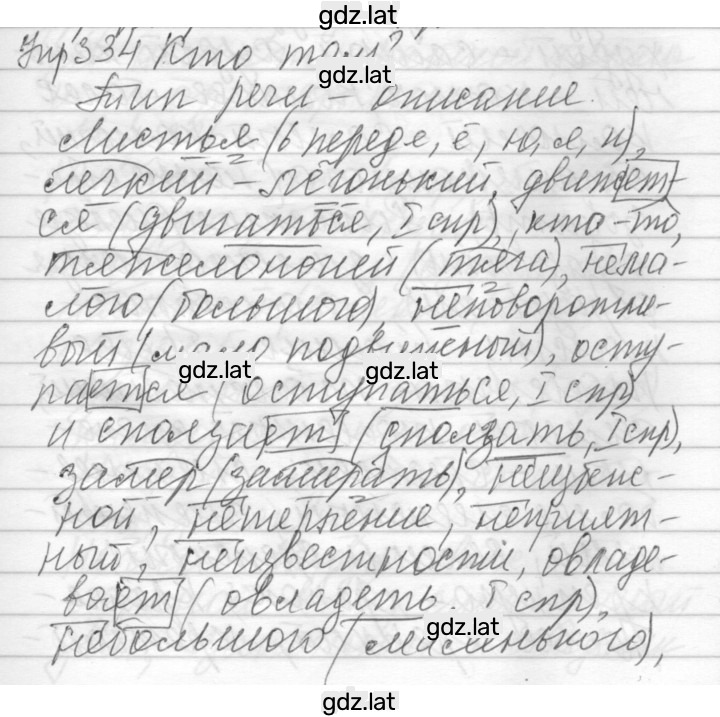 gdz.lat
Упр 334 Кто там?
gdz.lat
Тип речи – описание.
Листья (ь перед е, ё, ю, я, и),
легкий – лёгонький, движет-
ся (двигаться, I спр), кто-то,
тяжелоногий (тяга), нема-
лого (большого), неповоротли-
вый (мало подвижный), осту-
gdz.lat gdz.lat
пается (оступаться, I спр)
и сползает (сползать, I спр),
замер (замирать), неизбеж-
ной, нетерпение, неприят-
ный, неизвестности, овладе-
вает (овладеть. I спр),
небольшого (маленького),
gdz.lat
gdz.lat